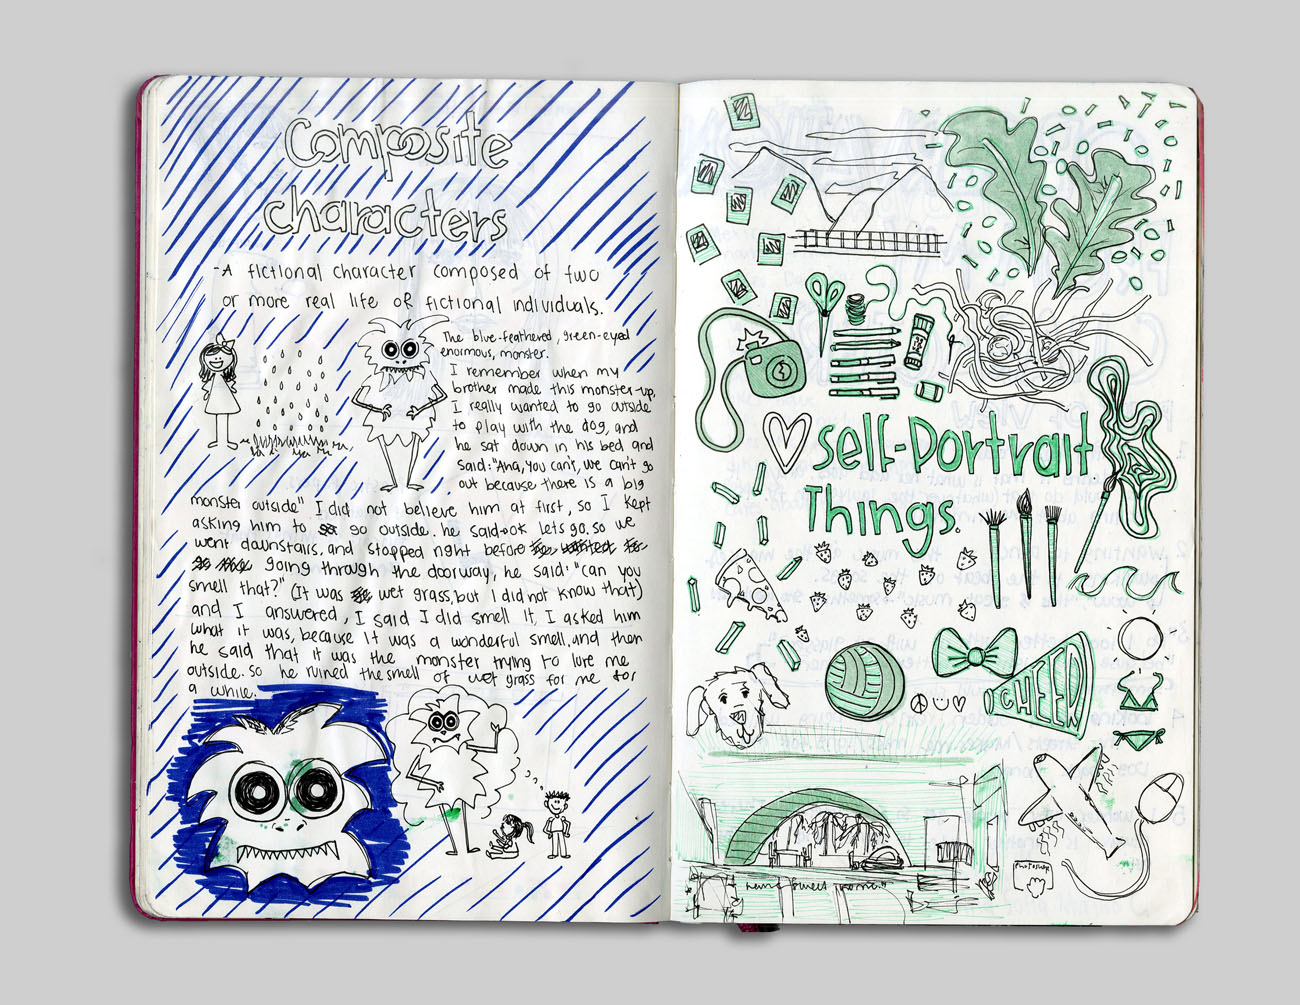 Composite
characters
-A fictional character composed of two
or more real life of fictional individuals.
The blue-feathered, green-eyed
enormous, monster.
I remember when my
brother made this monster-up,
I really wanted to go outside
to play with the dog, and
he sat down in his bed and
said: "Aha, you can't, we can't go
out because there is a big
monster outside" I did not believe him at first, so I kept
asking him to go outside. he said-ok lets go, so we
went downstairs, and stopped right before
going through the doorway, he said: "can you
smell that?" (It was wet grass, but I did not know that)
and I answered, I said I did smell it, I asked him
what it was, because it was a wonderful smell, and then
he said that it was the monster trying to lure me
outside. so he ruined the smell of wet grass for me for
a while.
Self-Portrait
Things.
CHEER
Photoshop
home sweet home"